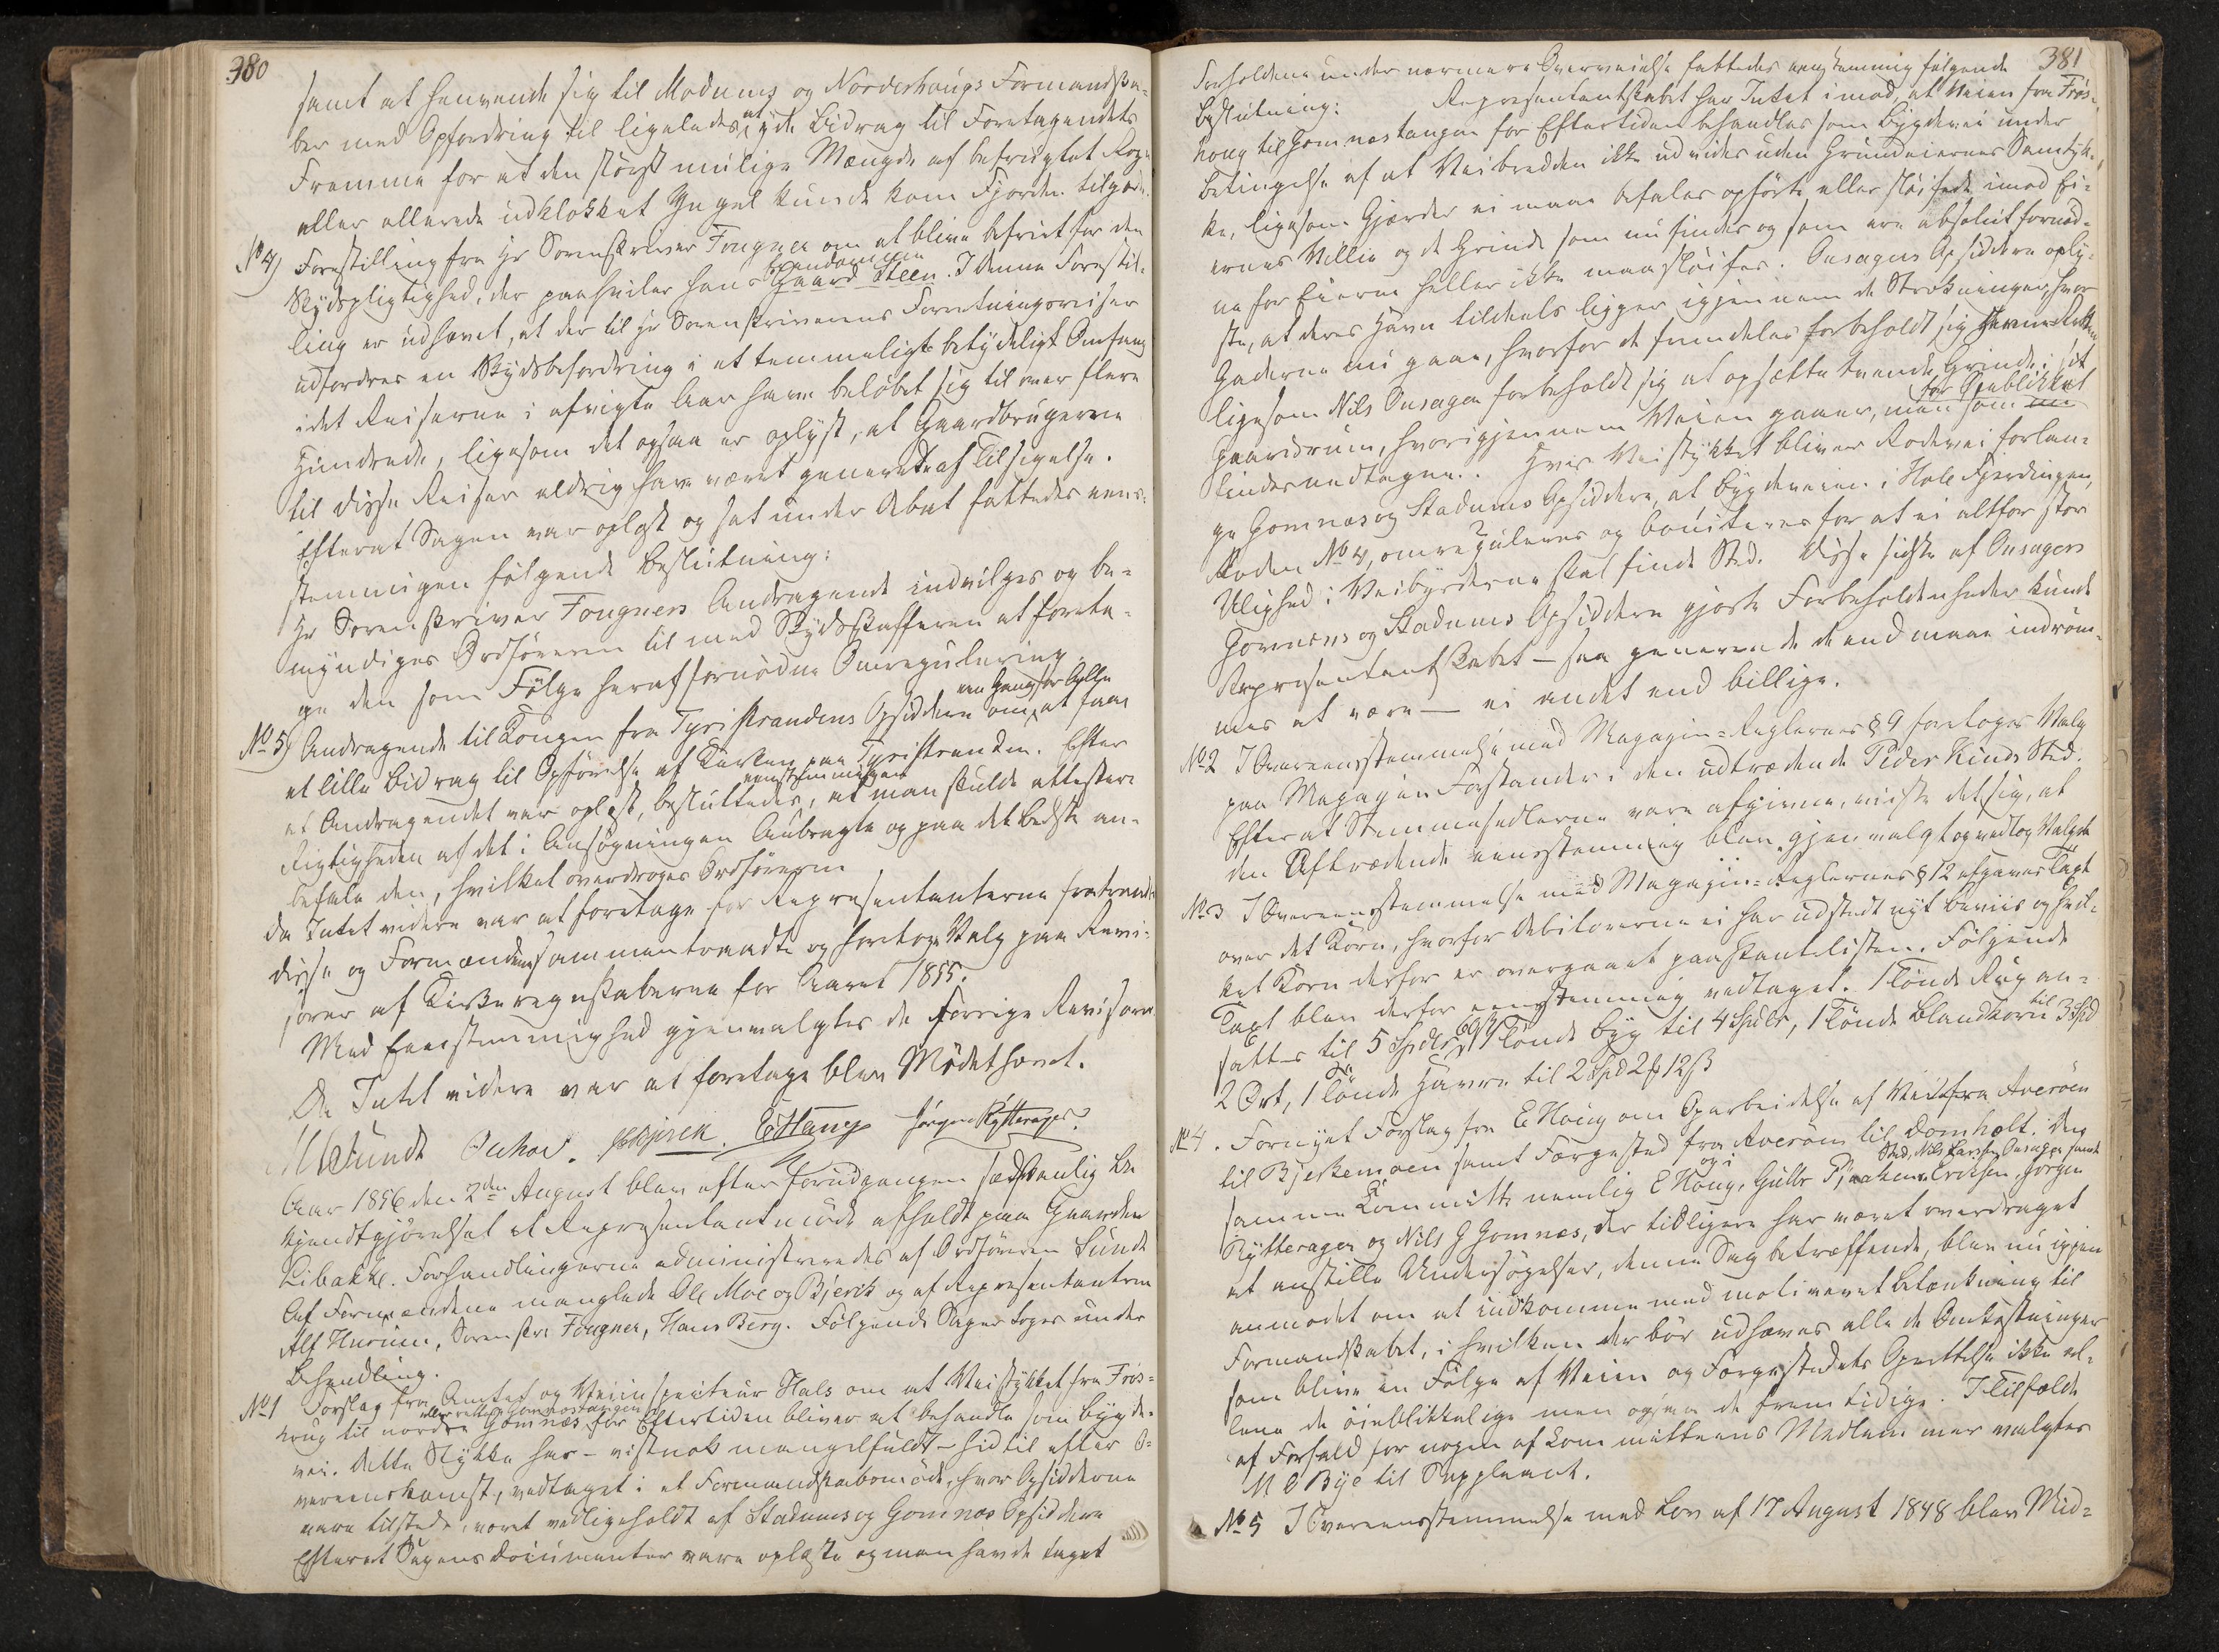 380
samt at henvende sig til Modums og Norderhougs Formandska-
ber med Opfordring til ligeledes at yde Bidrag til Foretagendets
Fremme for at den størst mulige Mængde af befrugtet Rogn
eller allerede udklækket Yngel kunde kom Fjorden tilgode.
No 4) Forestilling fra Hr Sorenskriver Fougner om at blive befriet for den
Skydspligtighed, der paahviler hans Eiendommen Gaard Steen. I denne Forestil-
ling er udhævet, at der til Hr Sorenskriverens Forretningsreiser
udfordres en Skydsbefordring i et temmeligt betydeligt Omfang
idet Reiserne i afvigte Aar have beløbet sig til over flere
Hundrede, ligesom det ogsaa er oplyst, at Gaardbrugerne
til disse Reiser aldrig have været generede af Tilsigelse.
Efterat Sagen var oplæst og sat under Debat fattedes eens-
stemmigen følgende Beslutning:
Hr Sorenskriver Fougners Andragende indvilges og be-
myndiges Ordføreren til med Skydsskafferen at foreta-
ge den som Følge heraf fornødne Omregulering.
No 5) Andragende til Kongen fra Tyristrandens Opsiddere om een Gang for Alle at faae
et lille Bidrag til Opførelse af Kirken paa Tyristranden. Efter
at Andragendet var oplæst, besluttedes eenstemmigen, at man skulde attestere
Rigtigheden af det i Ansøgningen Anbragte og paa det bedste an-
befale den, hvilket overdroges Ordføreren
Da Intet videre var at foretage for Repræsentanterne fratraadte
disse og Formændene sammentraadte og foretoge Valg paa Revi-
sorer af Kirkeregnskaberne for Aaret 1855.
Med Eenstemmighed gjenvalgtes de forrige Revisorer
Da Intet videre var at foretage blev Mødet hævet.
Sundt E Houg Jørgen Rytterager
Aar 1856 den 2den August blev efter forudgangen sædvanlig Be
kjendtgjørelse et Repræsentantmøde afholdt paa Gaarden
Libakke. Forhandlingerne administreredes af Ordføreren Sundt
Af Formændene manglede Ole Moe og Bjerke og af Repræsentanterne
Alf Hurum, Sorenskr. Fougner, Hans Berg. Følgende Sager toges under
Behandling.
No 1 Forslag fra Amtet og Veiinspecteur Hals om at Veistykket fra Frøs-
houg til nordre Gomnæs eller rettere Gomnæstangen for Eftertiden bliver at behandle som Bygde-
vei. Dette Stykke har - vistnok mangelfuldt - hidtil efter O-
vereenskomst, vedtaget i et Formandskabsmøde, hvor Opsidderne
vare tilstede, været vedligeholdt af Stadums og Gomnæs Opsiddere
Efterat Sagens Documenter vare oplæste og man havde taget
381
Forholdene under nærmere Overveielse fattedes eenstemmig følgende
Beslutning: Repræsentantskabet har Intet imod, at Veien fra Frøs-
houg til Gomnæstangen for Eftertiden behandles som Bygdevei under
Betingelse af at Veibredden ikke udvides uden Grundeiernes Samtyk-
ke, ligesom Gjærder ei maae befales opførte eller sløifede imod Ei-
ernes Villie og de Grinde som nu findes og som ere absolut fornød-
ne for Eierne heller ikke maa sløifes. Onsagers Opsiddere oply-
ste, at deres Havn tildeels ligger igjennem de Strækninger, hvor
Gaderne nu gaae, hvorfor de fremdeles forbeholdt sig Havneretten
ligesom Nils Onsager forbeholdt sig at opsætte tvende Grinde i sit
Gaardsrum, hvorigjennem Veien gaaer, men som for Øieblikket
findes nedtagne. Hvis Veistykket bliver Rodevei forlan-
ge Gomnæs og Stadums Opsiddere, at Bygdeveien i Hole Fjerdingen,
Roden No 4, omreguleres og boniteres for at ei altfor stor
Ulighed i Veibyrderne skal finde Sted. Disse sidste af Onsagers
Gomnæs og Stadums Opsiddere gjorte Forbeholdenheder kunde
Repræsentantskabet - saa generende de end maae indrøm-
mes at være - ei andet end billige.
No 2 I Overeensstemmelse med Magazin-Reglernes § 9 foretoges Valg
paa Magazin Forstander i den udtrædende Peder Kinds Sted.
Efterat Stemmesedlerne vare afgivne, viste det sig, at
den Aftrædende eensstemmig blev gjenvalgt og vedtog Valget
No 3 I Overeensstemmelse med Magazin-Reglernes § 12 afgaves Taxt
over det Korn, hvorfor Debitorerne ei har udstedt nyt Beviis og hvil-
ket Korn derfor er overgaaet paa Pantelisten. Følgende
Taxt blev derfor eenstemmig vedtaget. 1 Tønde Rug an-
sattes til 5 Spdlr 60 ß, 1 Tønde Byg til 4 Spdlr, 1 Tønde Blandkorn til 3 Spd
2 Ort, 1 Tønde Havre til 2 Spd 2 ₰ 12 ß
No 4. Fornyet Forslag fra E Houg om Oparbeidelse af Vei fra Averøen
til Bjerkemoen samt Færgested fra Averøen til Domholt. Den
samme Committe nemlig E Houg, Gulbr og i Sted, Nils Larsen Onsager samt Erichsen, Jørgen
Rytterager og Nils G Gomnæs, der tidligere har været overdraget
at anstille Undersøgelser, denne Sag betræffende, blev nu igjen
anmodet om at indkomme med motiveret Betænkning til
Formandskabet, i hvilken der bør udhæves alle de Omkostninger
som blive en Følge af Veien og Færgestedets Oprettelse ikke al-
lene de øieblikkelige men ogsaa de fremtidige. I Tilfælde
af Forfald for nogen af Committeens Medlemmer valgtes
M E Bye til Suppleant.
No 5 I Overeensstemmelse med Lov af 17 August 1848 blev Mid-